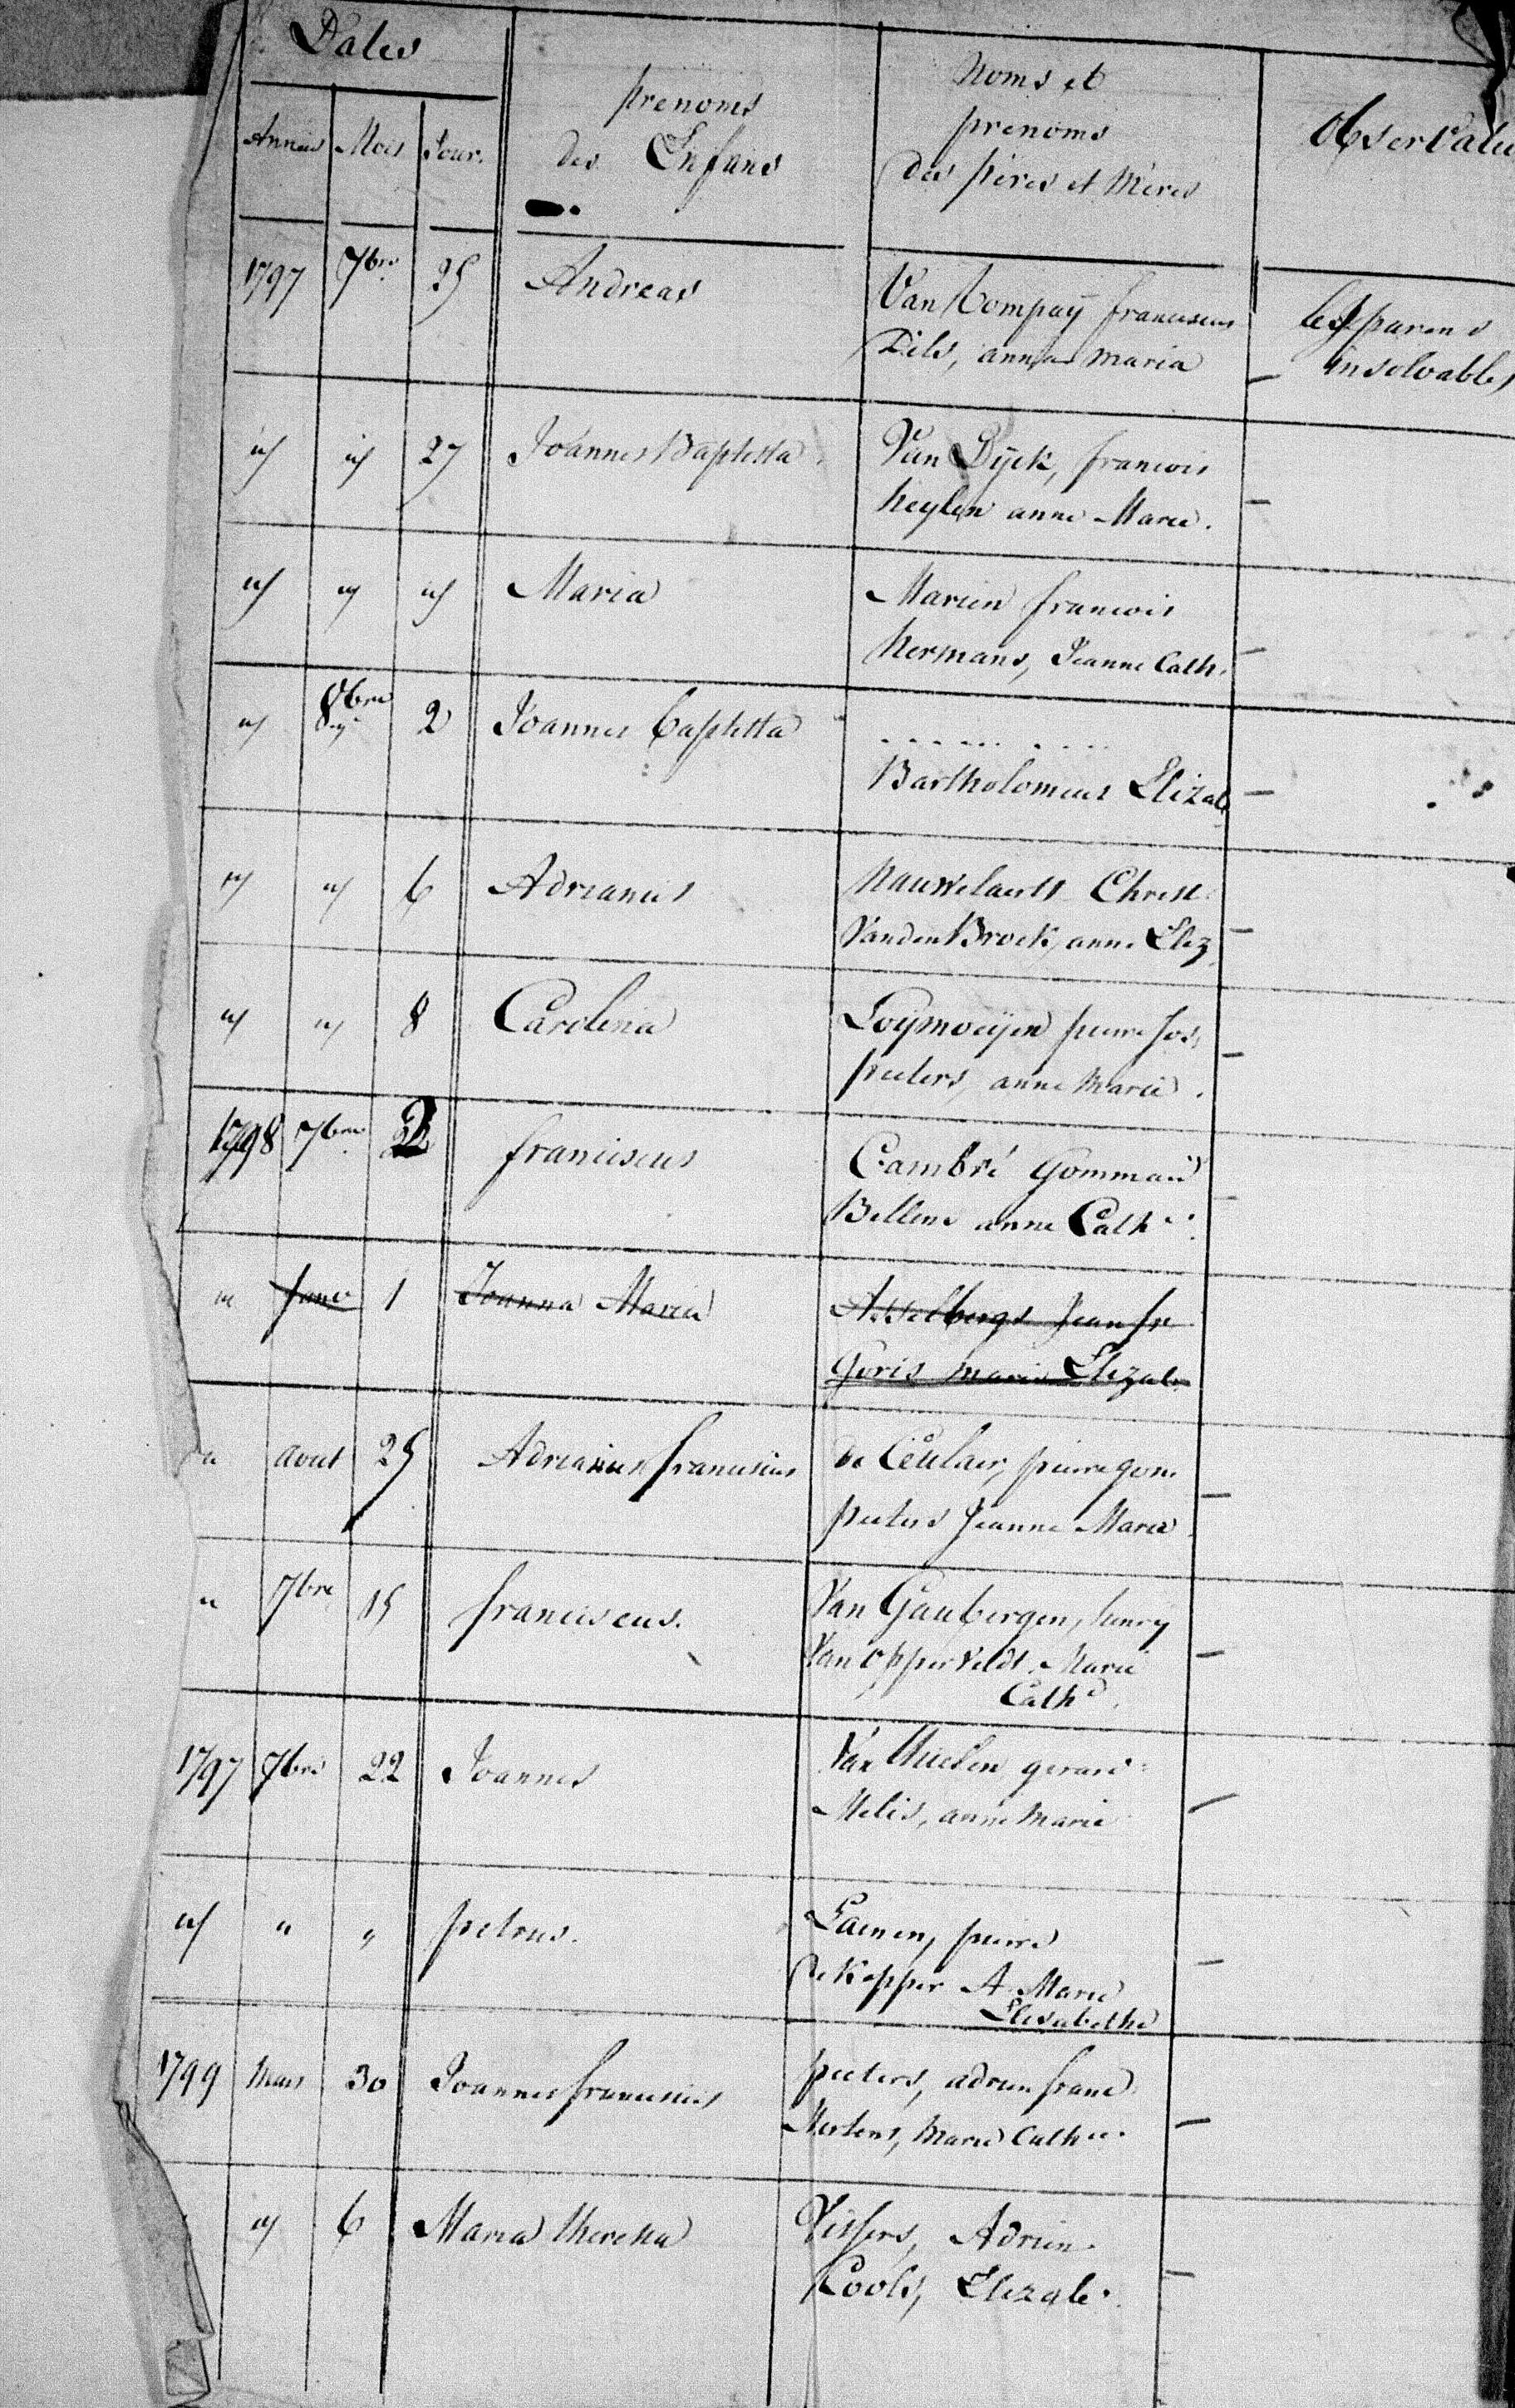 Dates
Années Mois Jour.
prenoms
des Enfans
Noms et
prenoms
des pères et Mères
1797 7bre 25 Andreas Van Compaÿ franciscus les parens
Dils, anna maria insolvables
id id 27 Joannes Baptista. Van Dÿck, francois
heylen anne Marie.
id id id Maria Marien francois
hermans, Jeanne Cath.
id 8bre 2 Joannes baptista .......
Bartholomeus Elizab
id id 6 Adrianus Nauwelaerts Christ.
VandenBroek, anne Eliz
id id 8 Carolina pierre Jos.
peeters, anne Marie.
1798 7bre franciscus Cambré Gommair
Bellens anne Cath
" Janv 1 Joanna Maria Asselbergs Jean fr
Goris marie Elizab.
" aout 25 Adrianus franciscus de Ceulaer, pierre gom.
peeters Jeanne Marie
" 7bre 15 franciscus. Van Gaubergen, henry
Van opperveldt Marie
Cath
1797 7bre 22 Joannes Van gerard
Melis, anne Marie
id " " petrus. Laenen, pierre
de Kepper A. Marie
Elisabethe
1799 Mars 30 Joannes franciscus peeters, adrien franc
Mertens, Marie Cath
id 6 Maria theresia Vissers, Adrien.
Cools, Elizab.